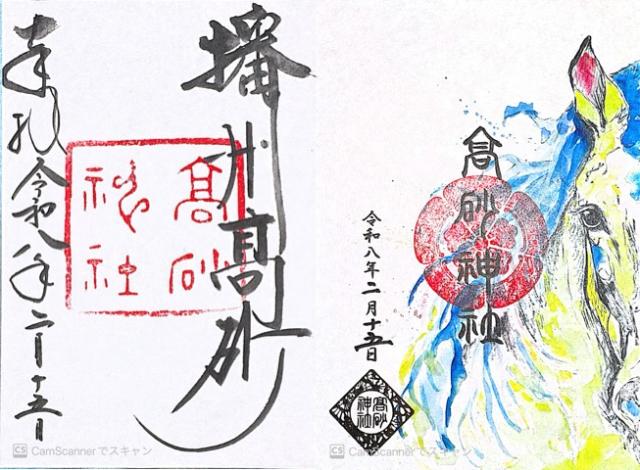 播州高砂
髙砂
神社
奉拝 令和八年二月十五日
CS CamScannerでスキャン
髙砂神社
令和八年二月十五日
髙砂
神社
CS CamScannerでスキャン